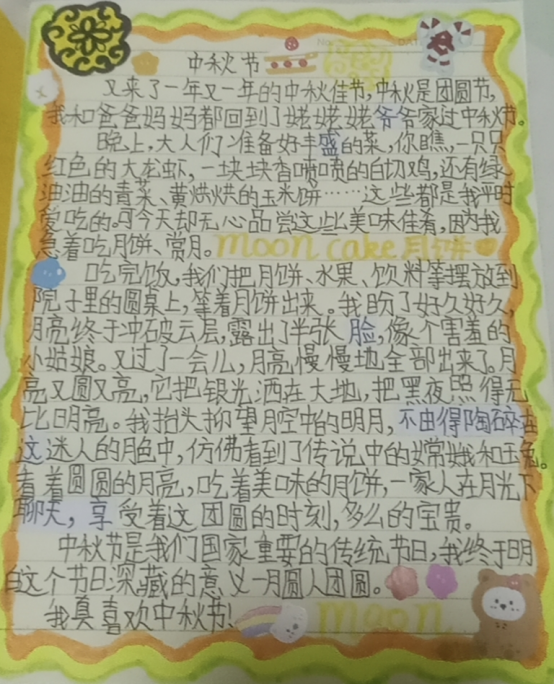 中秋节
又来了一年又一年的中秋佳节,中秋是团圆节,
我和爸爸妈妈都回到了姥姥姥爷爷家过中秋节。
晚上,大人们准备好丰盛的菜,你瞧,一只只
红色的大龙虾,一块块香喷喷的白切鸡,还有绿
油油的青菜、黄烘烘的玉米饼……这些都是我平时
爱吃的。可今天却无心品尝这些美味佳肴,因为我
急着吃月饼、赏月。moon cake月饼
吃完饭,我们把月饼、水果、饮料等摆放到
院子里的圆桌上,等着月饼出来。我盼了好久好久,
月亮终于冲破云层,露出了半张脸,像个害羞的
小姑娘。又过了一会儿,月亮慢慢地全部出来了。月
亮又圆又亮,它把银光洒在大地,把黑夜照得无
比明亮。我抬头抑望月空中的明月,不由得陶碎在
这迷人的月色中,仿佛看到了传说中的嫦娥和玉兔。
看着圆圆的月亮,吃着美味的月饼,一家人在月光下
聊天,享受着这团圆的时刻,多么的宝贵。
中秋节是我们国家重要的传统节日,我终于明
白这个节日深藏的意义一月圆人团圆。
我真喜欢中秋节!moon